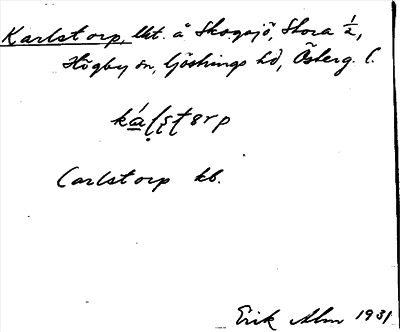 Karlstorp, lht. å Skogsjö, Stora 1/2,
Högby sn, Göstrings hd, Österg. l.
Carlstorp kb.
Erik Alm 1931